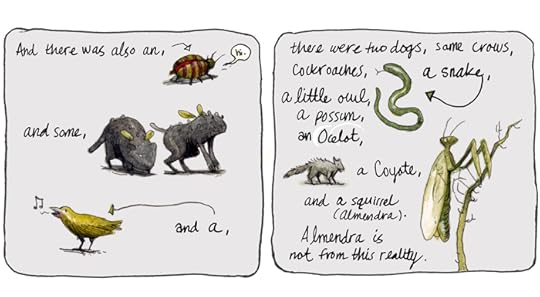 And there was also an,
hi.
and some,
and a,
there were two dogs, some crows,
cockroaches, a snake,
a little owl,
a possum,
an Ocelot,
a Coyote,
and a squirrel
(almendra).
Almendra is
not from this reality.